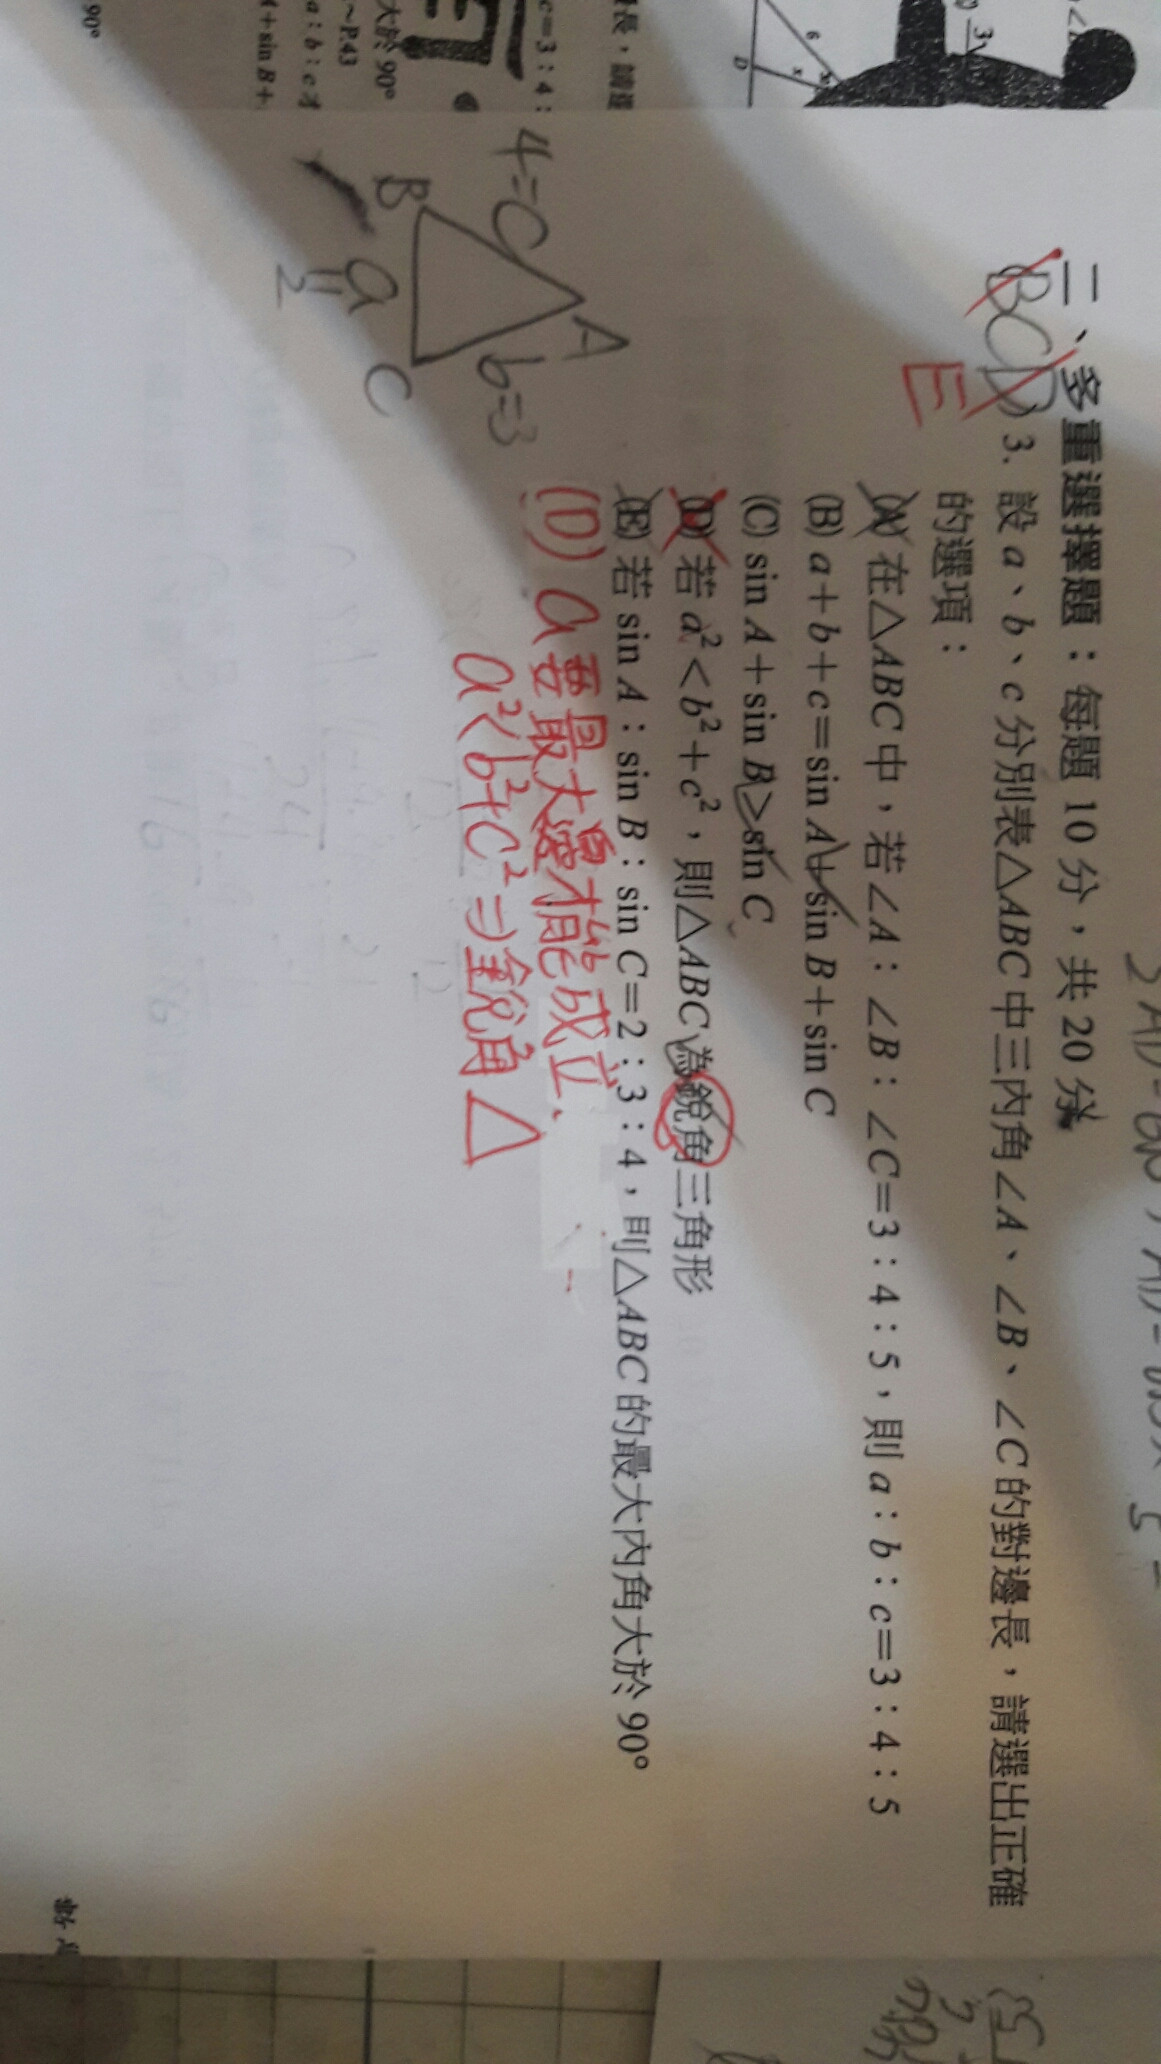 二、多重選擇題：每題 10 分，共 20 分
BCD
E
3. 設 a、b、c 分別表△ABC 中三內角∠A、∠B、∠C 的對邊長，請選出正確
的選項：
(A) 在△ABC 中，若∠A：∠B：∠C=3：4：5，則 a：b：c=3：4：5
(B) a+b+c=sin A+sin B+sin C
(C) sin A+sin B>sin C
(D) 若 a²<b²+c²，則△ABC 為銳角三角形
(E) 若 sin A：sin B：sin C=2：3：4，則△ABC 的最大內角大於 90°
(D) a要最大邊才能成立、
a²<b²+c²⇒銳角△
4=C
A
b=3
B
a
C
2
6
x
D
3
長，請選
c=3：4：
大於 90°
~P.43
a：b：c
+sin B+
90°